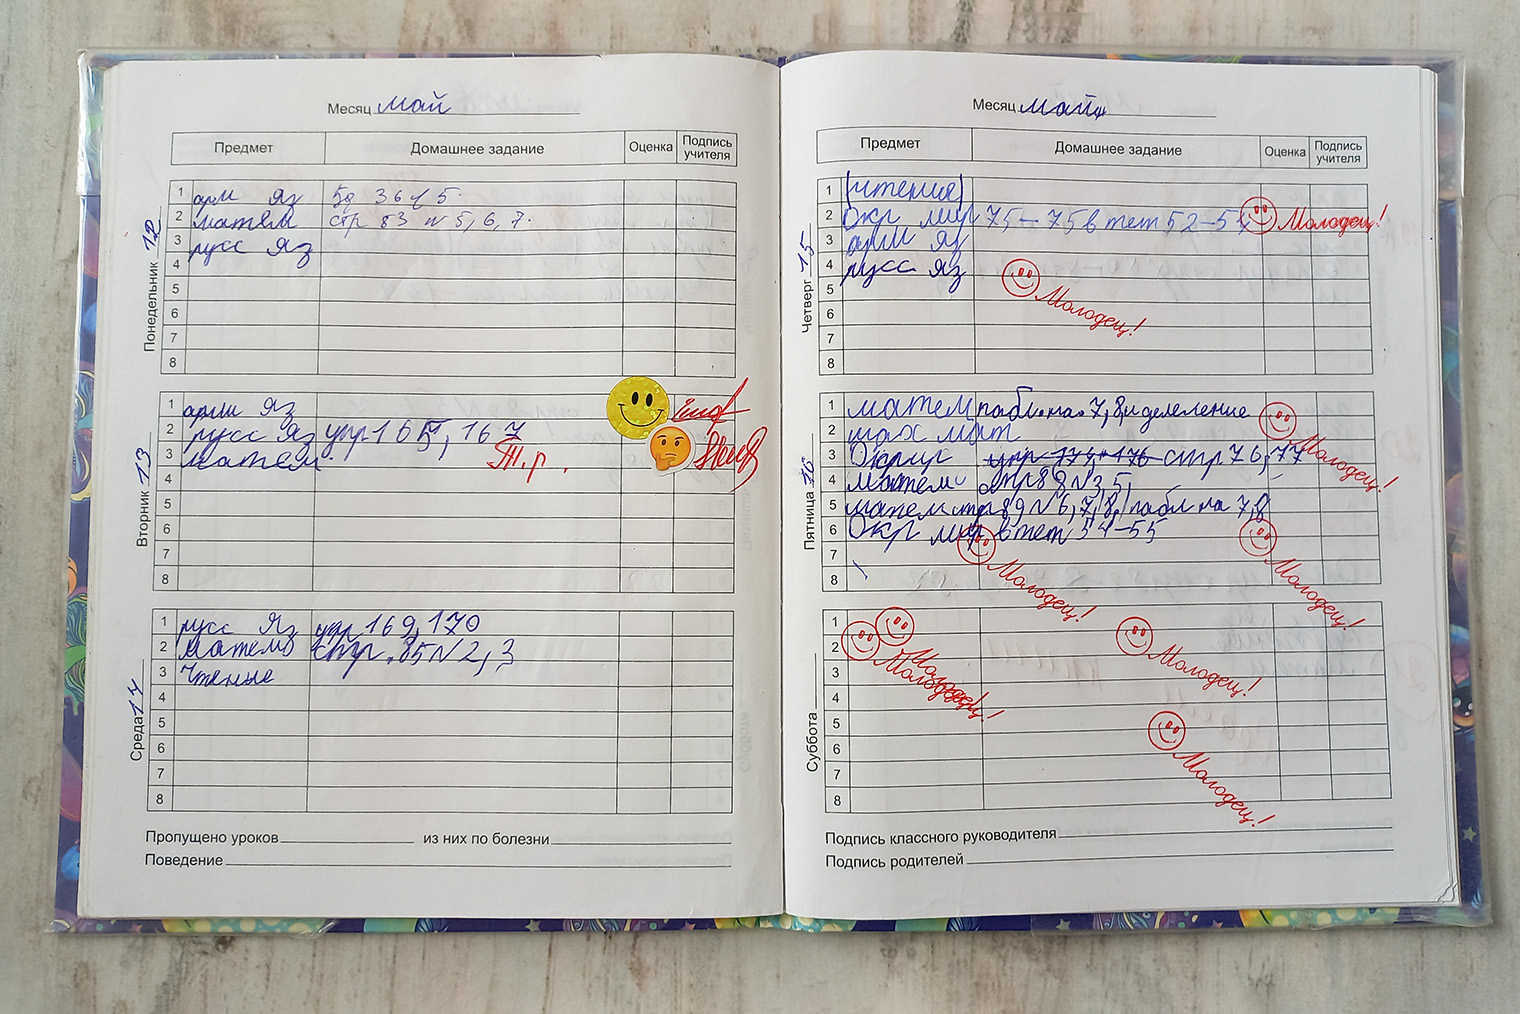 Месяц май
Предмет Домашнее задание Оценка Подпись учителя
Понедельник 12
1 арм яз 5д 36 45.
2 матем стр 83 N 5, 6, 7.
3 русс яз
4
5
6
7
8
Вторник 13
1 арм яз
2 русс яз упр 165, 167
3 матем. Т.р.
4
5
6
7
8
Среда 14
1 русс яз упр 169, 170
2 матем стр. 85 N 2, 3
3 Чтение
4
5
6
7
8
Пропущено уроков из них по болезни
Поведение
Месяц май
Предмет Домашнее задание Оценка Подпись учителя
Четверг 15
1 (чтение)
2 Окр мир 75-75 в тет 52-54 Молодец!
3 арм яз
4 русс яз
5 Молодец!
6
7
8
Пятница 16
1 матем табл. на 7, 8, и делеление
2 шах мат
3 Окр стр 76, 77 Молодец!
4 матем стр 88 N 3, 5,
5 матем стр 89 N 6, 7, 8, табл на 7, 8
6 Окр мир в тет 54-55
7 Молодец! Молодец!
8
Суббота
1
2 Молодец!
3 Молодец! Молодец!
4
5
6 Молодец!
7
8
Подпись классного руководителя
Подпись родителей